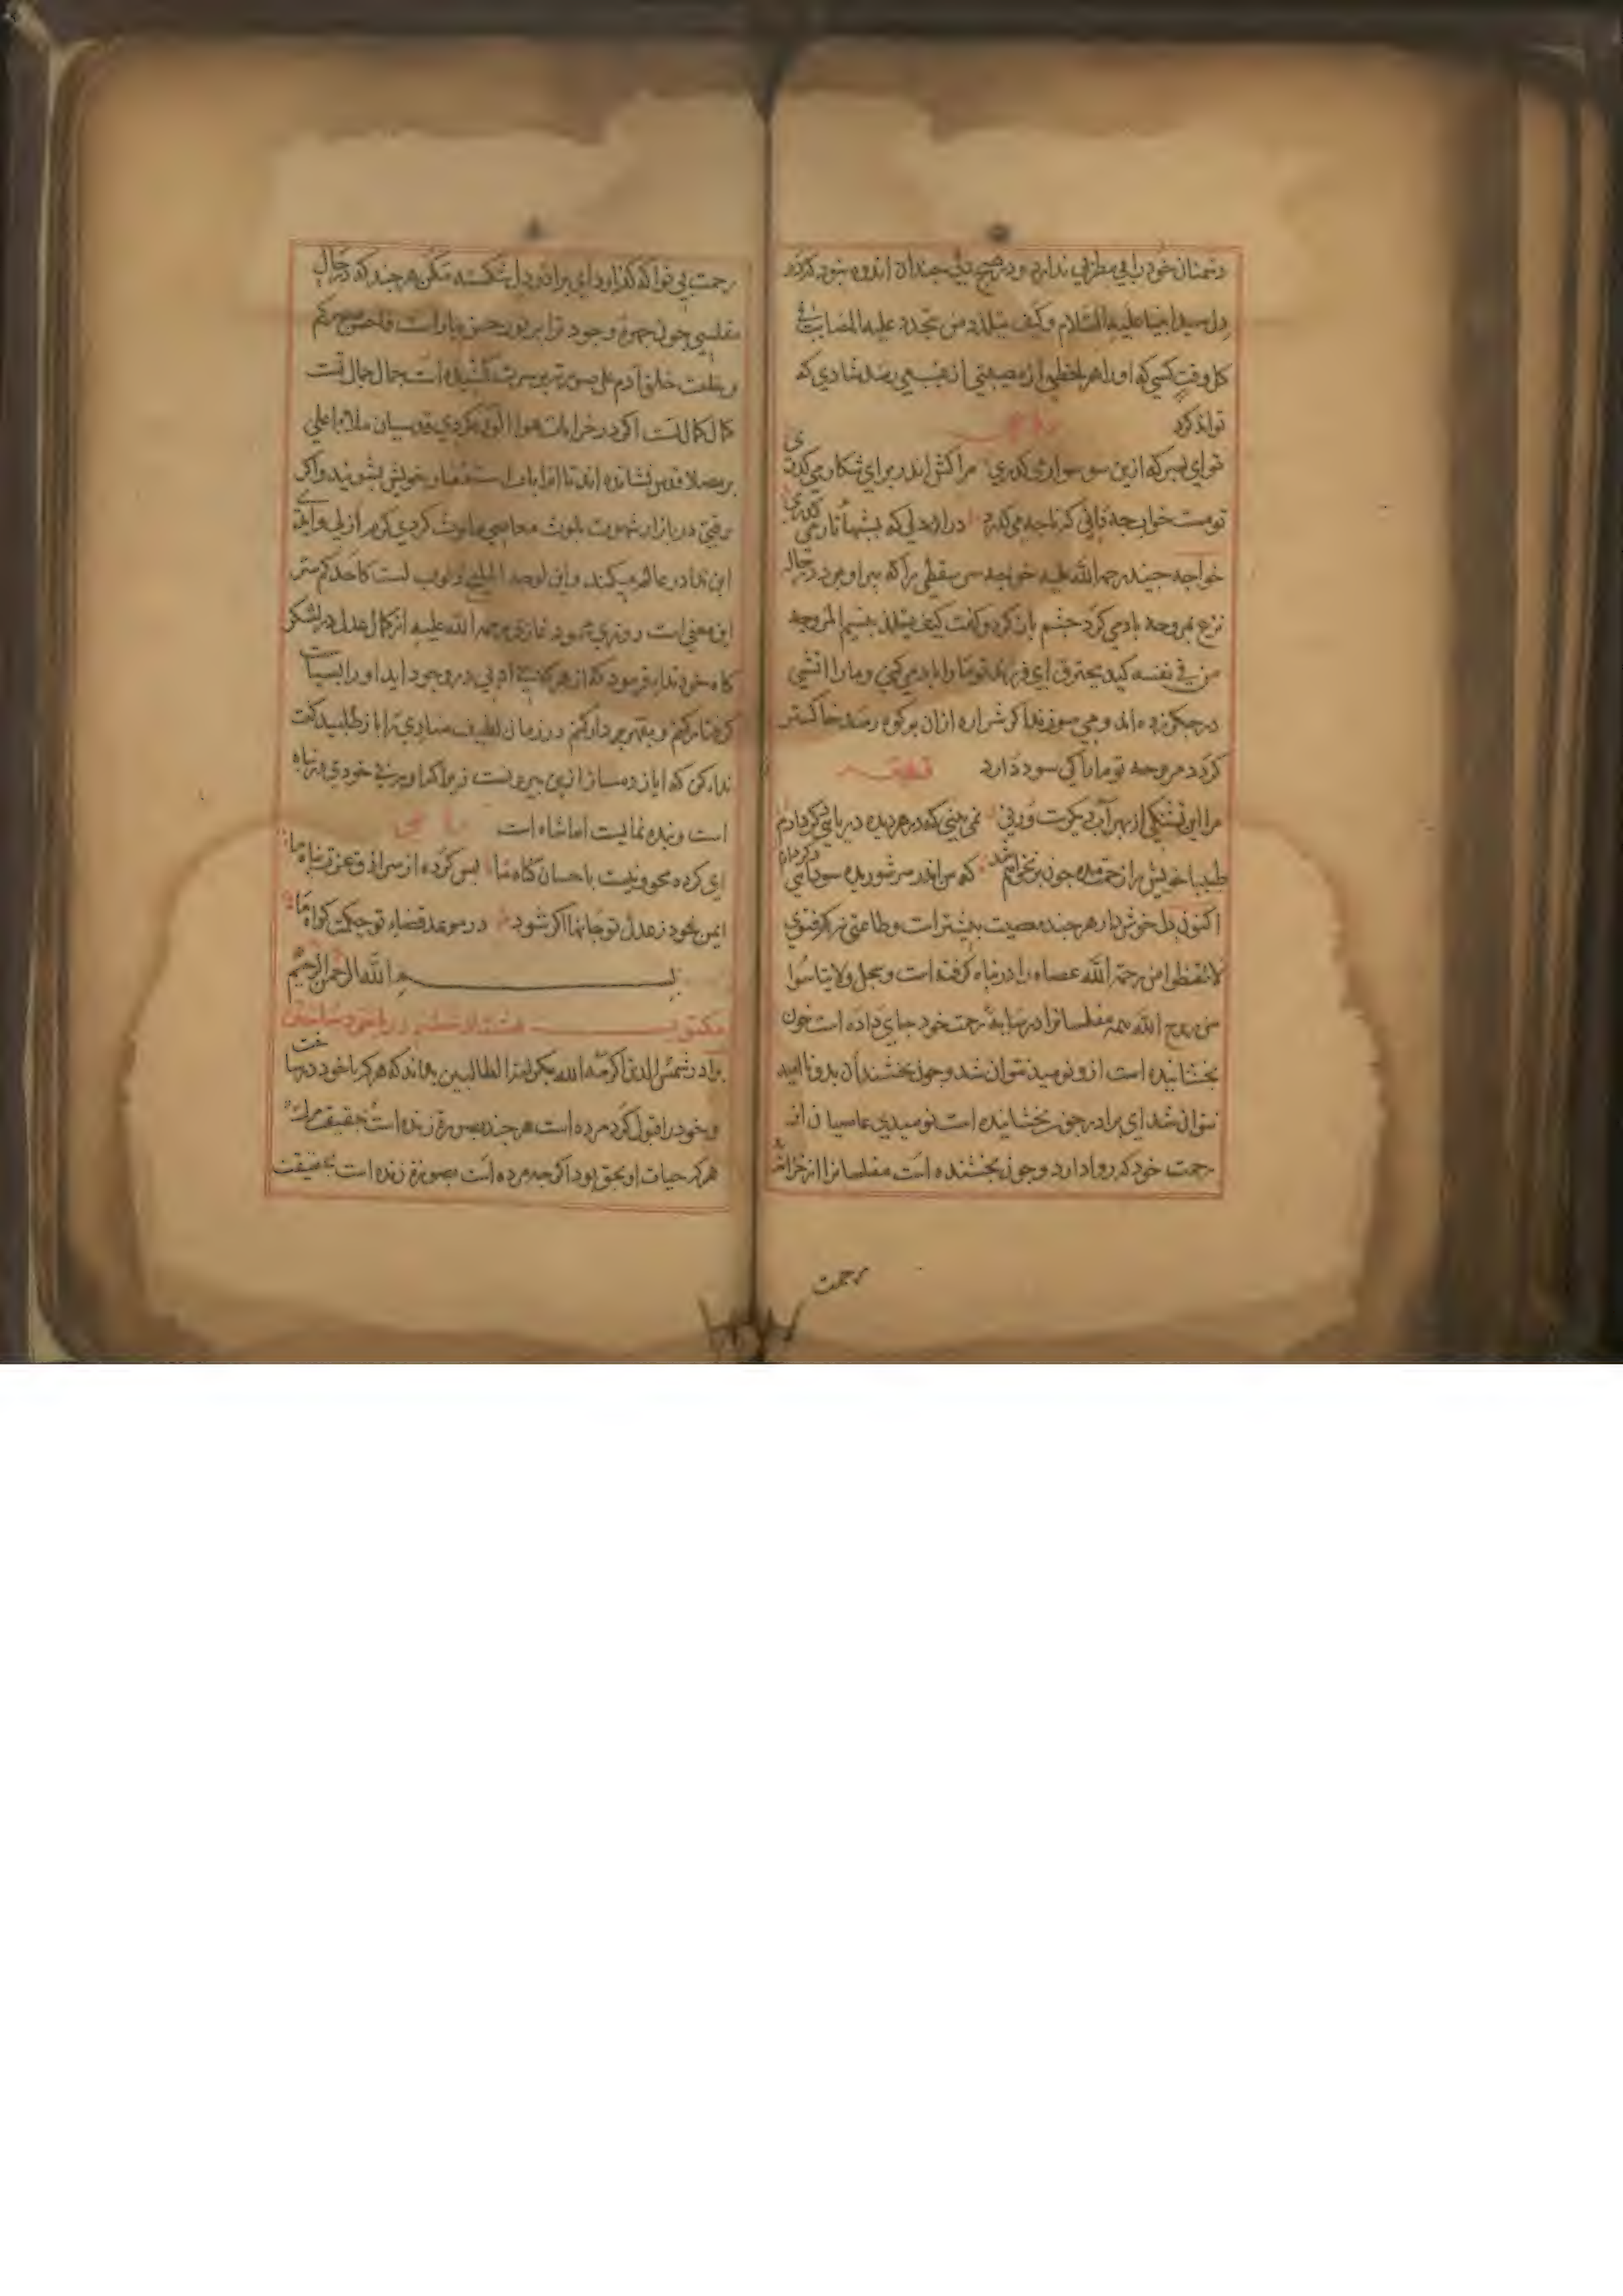 دشمنان خود را در مطربی ندارد و در هیچ دلی چندان اندوه نبود که در
دل سید انبیا علیه السلام و کیف یتلذذ من تتجدد علیه المصایب فی
کل وقت کسی که او را هر لحظه از مصیبتی از غیب می رسد شادی که
تواند کرد
تو ای پسر که ازین سو سواری گذری مرا کش اندر برای شکار می گذری
تو مست خواب چه دانی که تا چه می گذرد در ان دلی که بشبها تار می گذری
خواجه جنید رحمة الله علیه خواجه سری سقطی را که پیر او بود در حالة
نزع بمروحه باد می کرد چشم باز کرد و گفت کیف یتلذذ بنسیم المروحه
من فی نفسه کبد یحترق ای فرزند تو ما را باد می کنی و ما را اتشی
در جگر زده اند و می سوزند اگر شراره ازان بر کوه رسد خاکستر
کردد مروحه تو ما را کی سود دارد
قطعه
مرا این تشنگی از بهر آب دیگرست ورنی نمی بینی که در هر دیده دریایی
طبیبا خویش را زحمت مده چون به نخواهم شد که من اندر سر شوریده سودایی
اکنون دل خوش دار هر چند معصیت بیشتر است و طاعتی نه که فتوی
لا تقنطوا من رحمة الله عصاة را در پناه گرفته است و سجل ولا تیاسوا
من روح الله همه مفلسانرا در سایه رحمت خود جای داده است چون
بخشاینده است ازو نومید نتوان شد و چون بخشنده ان بدو نا امید
نتوان شد ای برادر چون بخشاینده است نومیدی عاصیان از
رحمت خود که روا دارد و چون بخشنده است مفلسانرا از خزانه
رحمت
رحمت بی نوا که گذارد ای برادر دل شکسته مکن هر چند که در حال
مفلسی چون چهره وجود ترا بر نور حسن بیاراست فاحسن صورکم
و خلعت خلق آدم علی صورته بر سرت کشیده است جمال جمال تست
کمال کمال تست اگر در خرابات هوا الوده کردی قدسیان ملاء اعلی
بر مصلاء قدس نشانده اند تا انرا باب استغفار خویش بشویند و اگر
وقتی در بازار شهوت بلوث معاصی ملوث کردی کرم ازلی و ابدی
این ندا در عالم میکند
این معنی است روزی محمود غازی رحمة الله علیه از کمال عدل در لشکر
کاه خود ندا فرمود که از هر که بی ادبی در وجود اید او را بسیاست
ندا کن که ایاز و مساز ازین بیرونست زیرا که او بی خودی در پناه
است و بنده نمایست اما شاه است
رباعی
ای کرده محو ونیست باحسان گناه ما بس کرده از سرادق عزت پناه ما
ایمن نبود ز عدل تو جانها اگر شود در موعد قضاء تو حکمش گواه ما
بسم الله الرحمن الرحیم
برادر شمس الدین اکرمه الله بکرامة الطالبین بداند که هر که با خود در ساخت
و خود را قبول کرد مرده است هر چند بصورة زنده است حقیقت
هر که حیات او بحق بود اگرچه مرده است بصورة زنده است بحقیقت